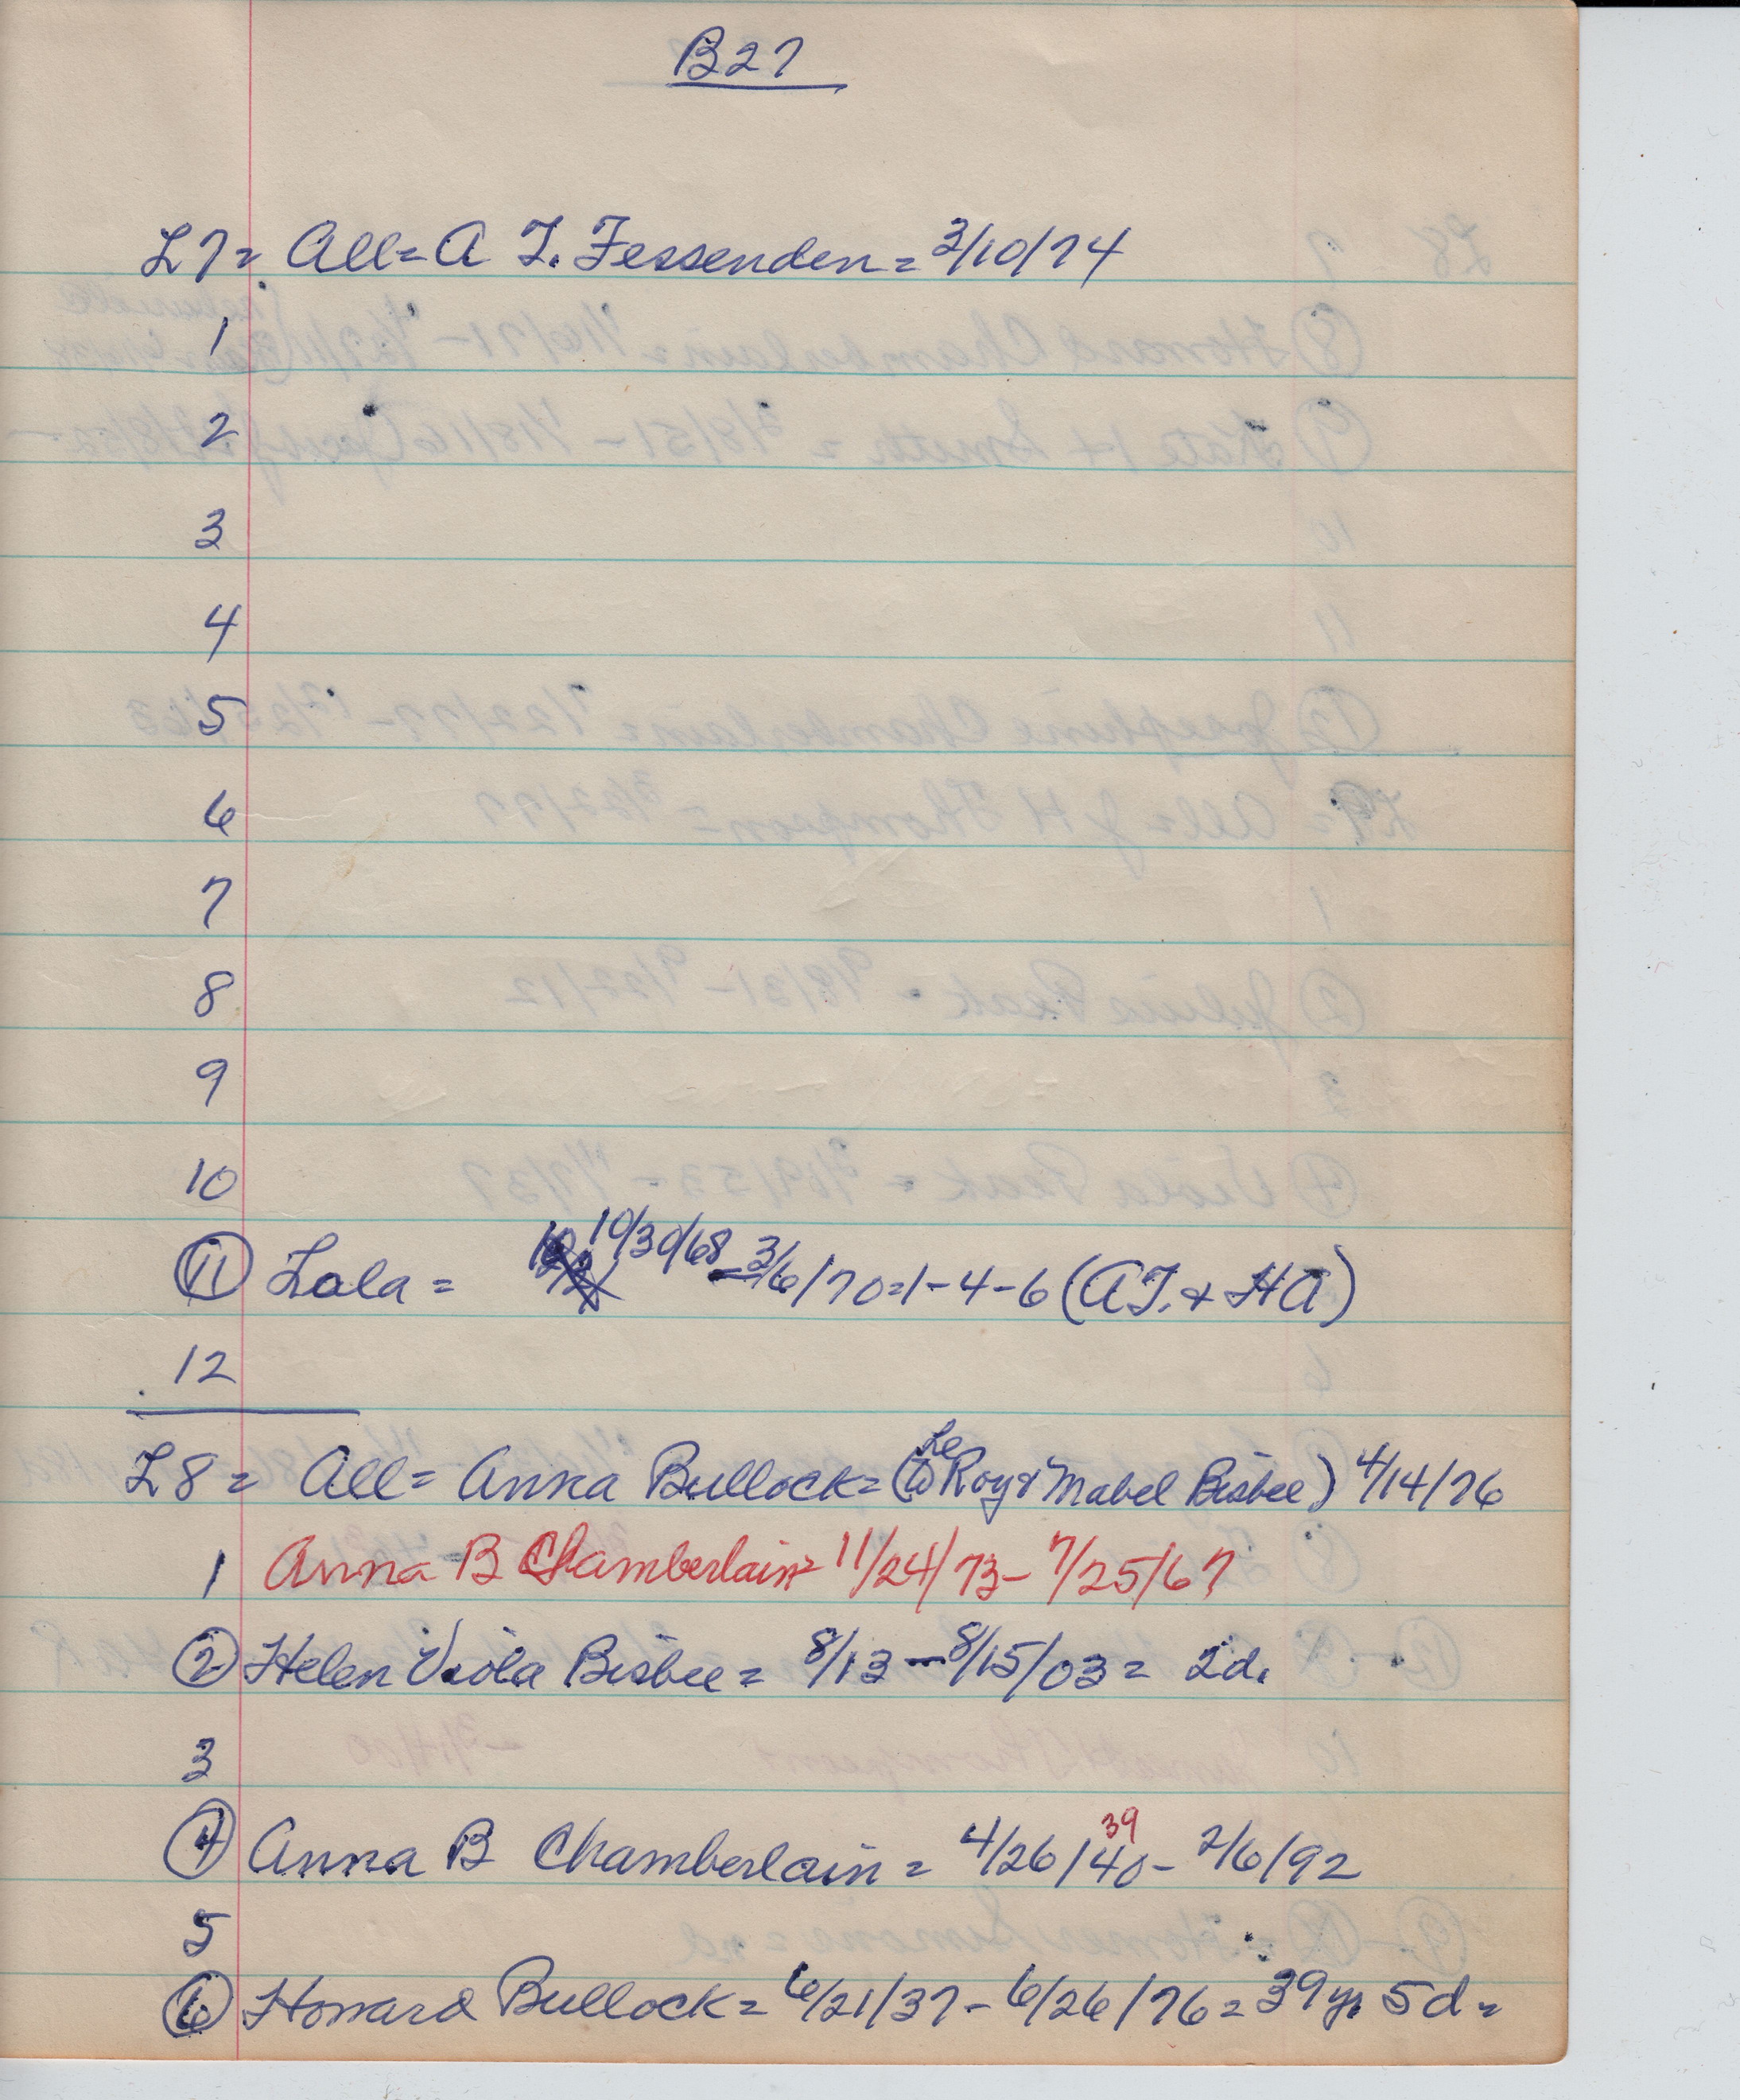 B27
L7 = All = A F. Fessenden = 3/10/74
1
2
3
4
5
6
7
8
9
10
11 Lola = 10/30/68 - 3/6/70 = 1-4-6 (AF. & HA)
12
L8 = All = Anna Bullock = (to LeRoy & Mabel Bisbee) 4/14/76
1 Anna B Chamberlain = 11/24/73 - 7/25/67
2 Helen Viola Bisbee = 8/13 - 8/15/03 = 2d.
3
4 Anna B Chamberlain = 4/26/40 39 - 2/6/92
5
6 Howard Bullock = 6/21/37 - 6/26/76 = 39 yr 5d =